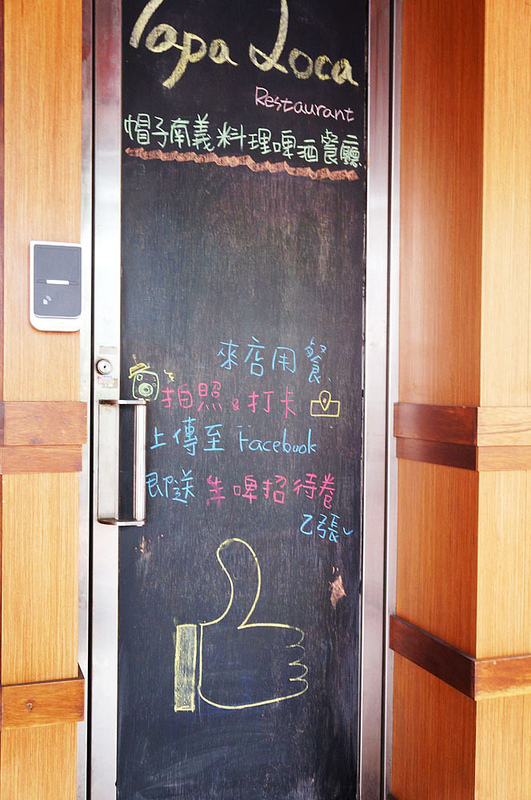 Tapa Loca
Restaurant
帽子南義料理啤酒餐廳
來店用餐
拍照&打卡
上傳至 Facebook
即送 生啤招待卷
乙張